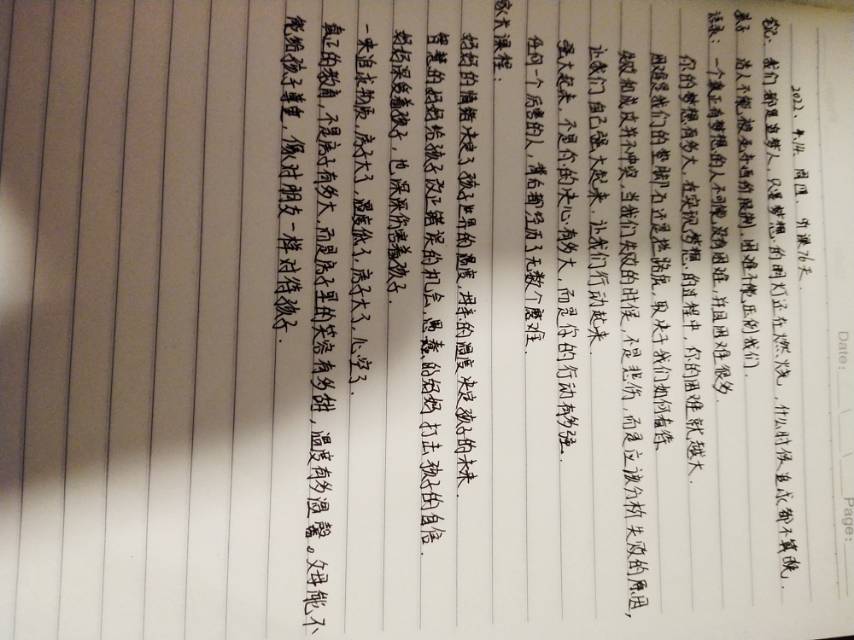 Date:
Page:
2022、4.14 周四. 听课76天.
我们都是追梦人,只要梦想的明灯还在燃烧,什么时候追求都不算晚.
孩子 成人不能被走的限制,困难不能压倒我们.
一个真正有梦想的人不可能没有困难,并且困难很多.
你的梦想有多大,在实现梦想的过程中,你的困难就越大.
困难是我们的垫脚石还是拦路虎,取决于我们如何看待.
失败和成功并不冲突,当我们失败的时候,不是悲伤,而是应该分析失败的原因,
让我们自己强大起来,让我们行动起来.
强大起来,不是你的决心有多大,而是你的行动有多强.
任何一个厉害的人,背后都经历了无数个磨难.
家长课程:
妈妈的情绪决定了孩子世界的温度,母亲的温度决定孩子的未来.
智慧的妈妈给孩子改正错误的机会,愚蠢的妈妈打击孩子的自信.
妈妈深爱着孩子,也深深伤害着孩子.
一味追求物质,房子大了,温度低了,房子大了,心空了.
真正的教育,不是房子有多大,而是房子里的笑容有多甜,温度有多温馨。父母能不
能给孩子尊重,像对朋友一样对待孩子.